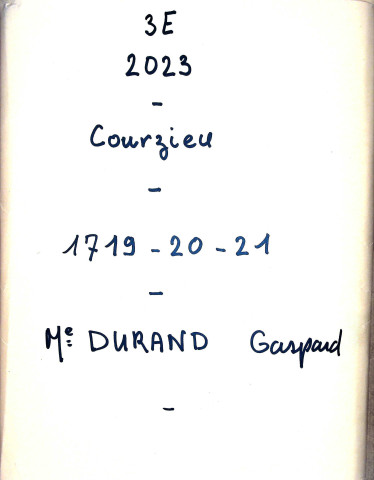 3E
2023
-
Courzieu
-
1719 - 20 - 21
-
Me: DURAND Gaspard
-